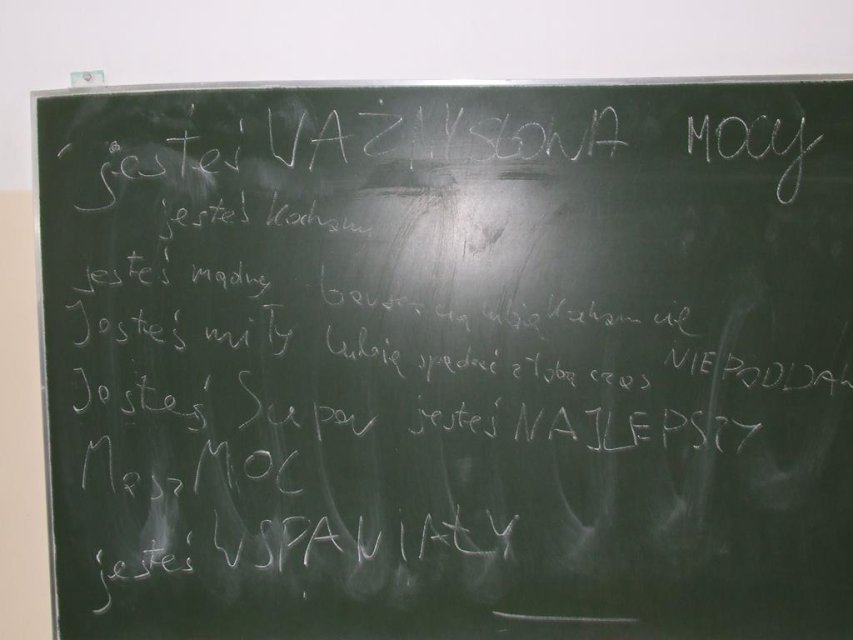 jesteś WAŻNY SŁOWA MOCY
jesteś Kocham
jesteś mądry bardzo cię lubię Kocham cię
Jesteś miły Lubię spędzać z tobą czas NIEPODDA
Jesteś Super jesteś NAJLEPSZY
Masz MOC
jesteś WSPANIAŁY